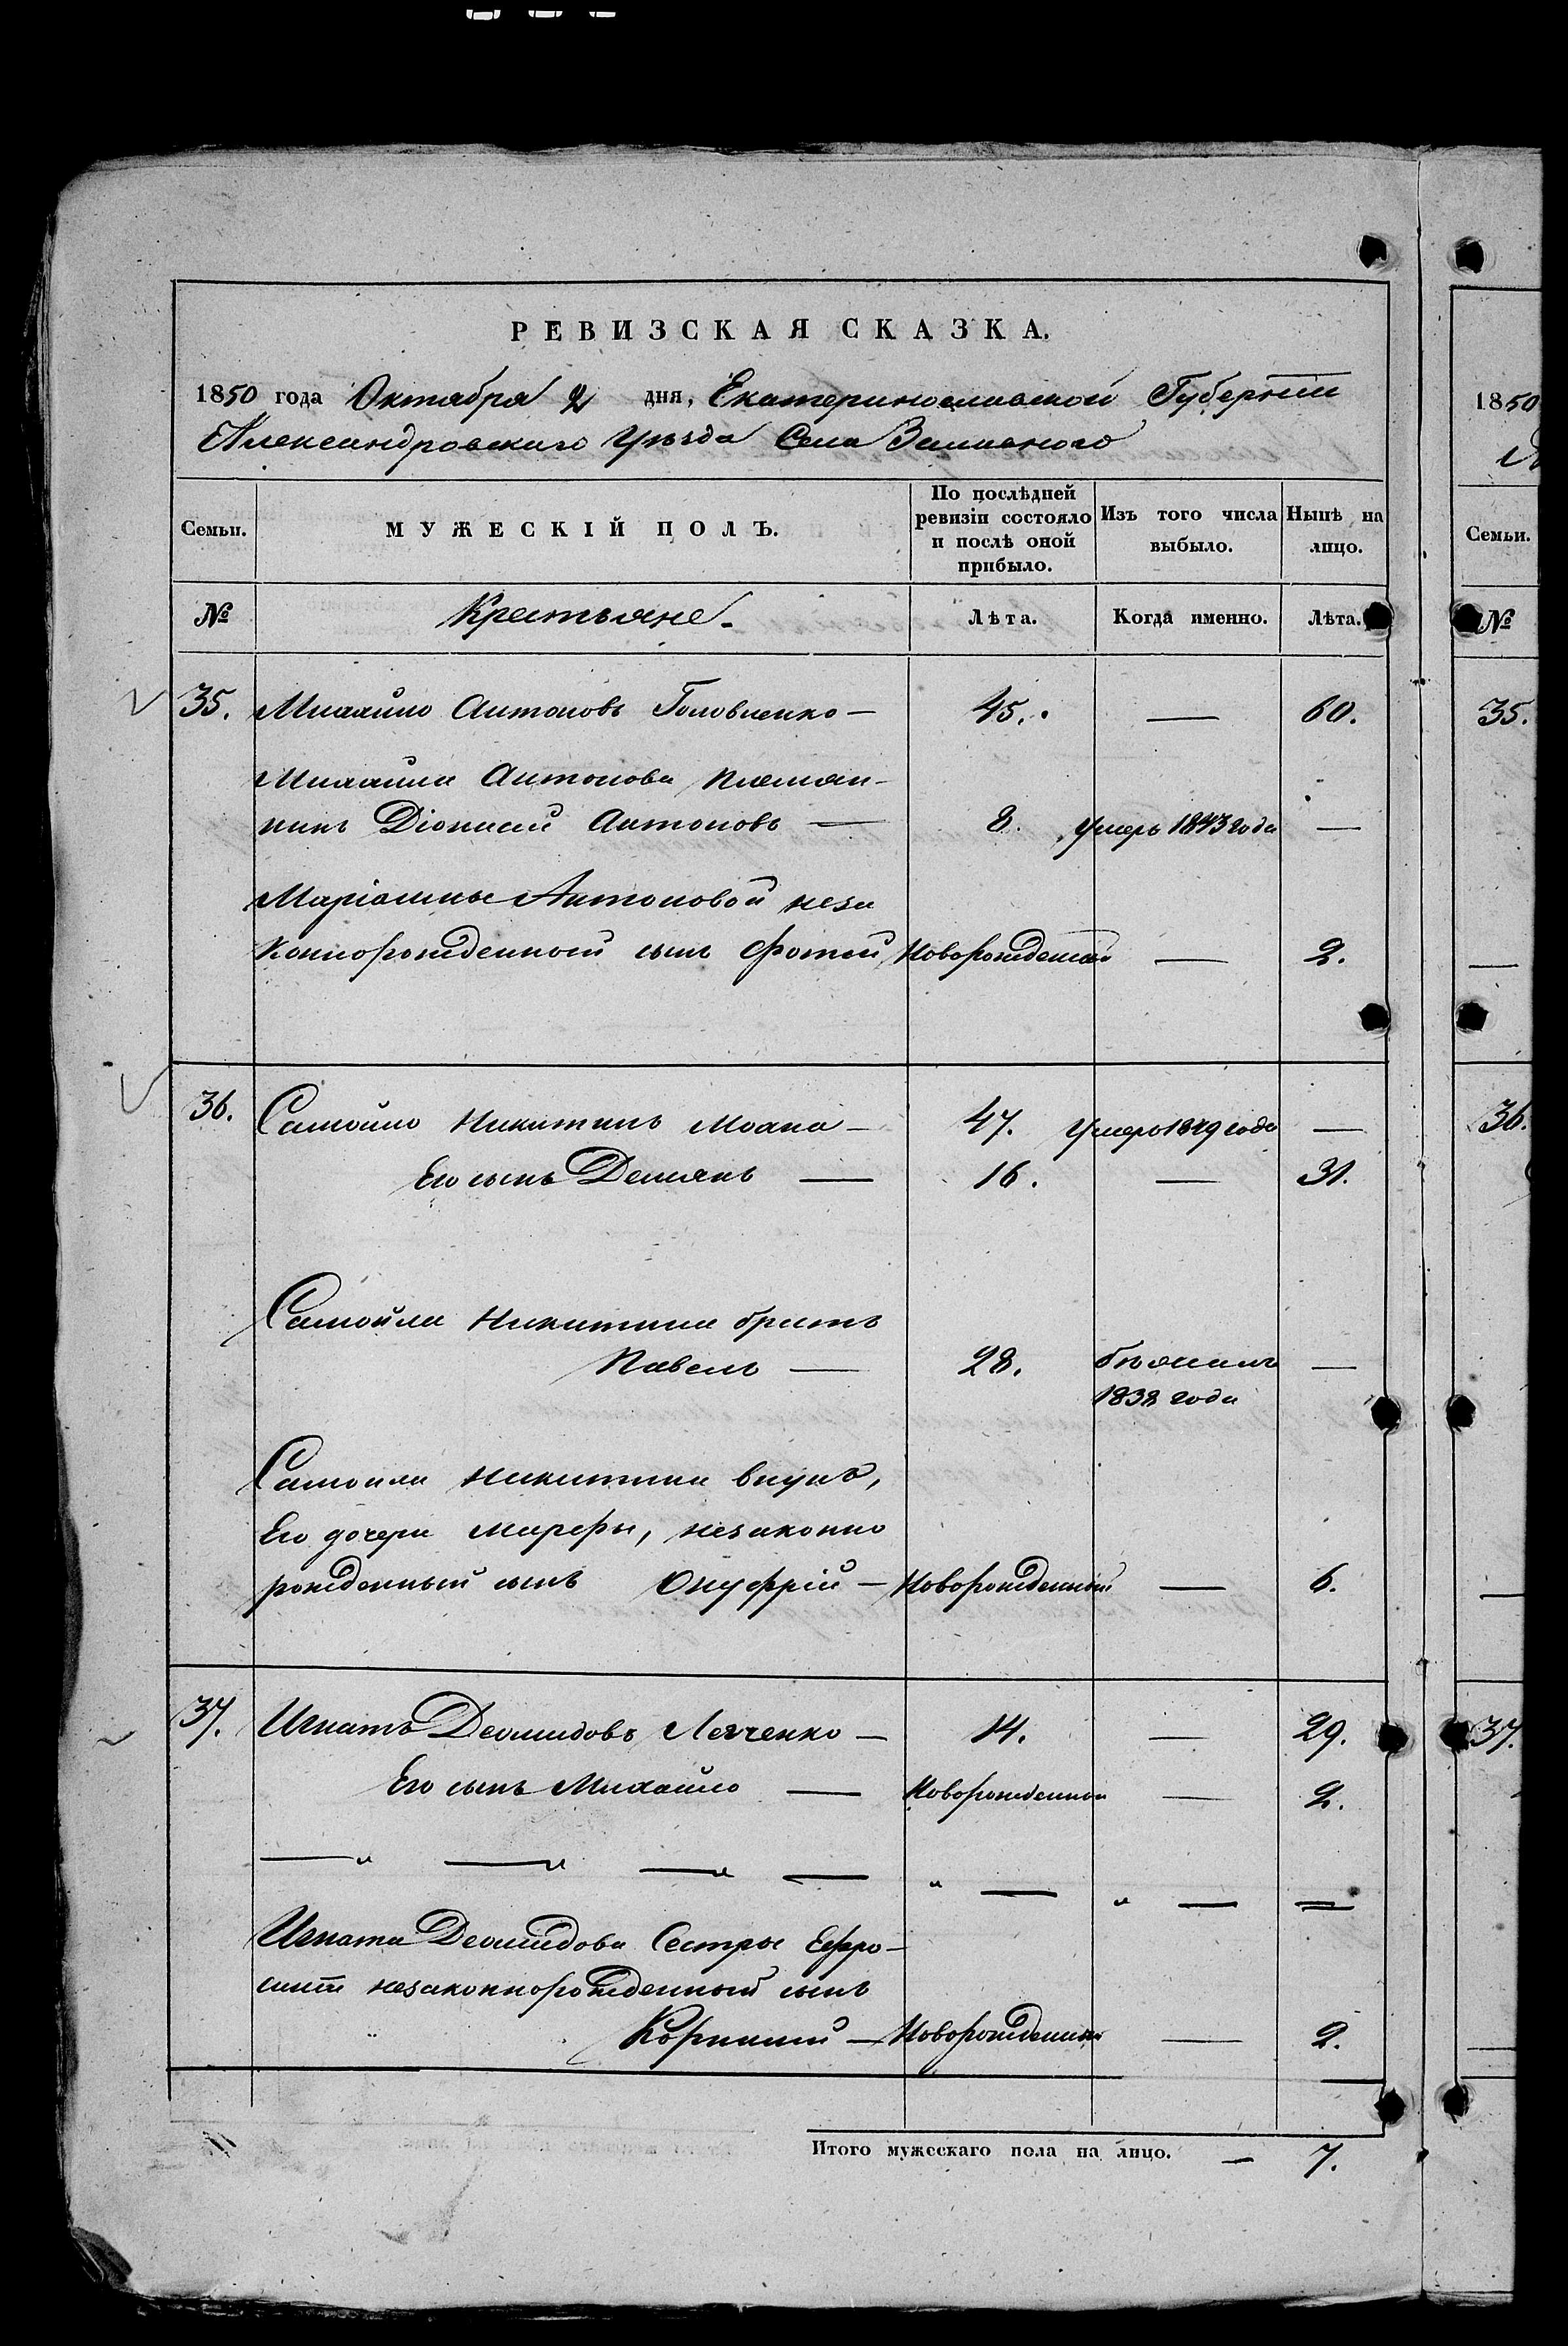 РЕВИЗСКАЯ СКАЗКА.
1850 года Октября 2 дня, Екатеринославской Губерніи
Александровскаго Уѣзда Села Заливнаго
Семьи. МУЖЕСКІЙ ПОЛЪ. По послѣдней ревизіи состояло и послѣ оной прибыло. Изъ того числа выбыло. Нынѣ на лицо.
№ Крестьяне. Лѣта. Когда именно. Лѣта.
35. Михайло Антоновъ Головченко — 45. — 60.
Михайла Антонова племян-
никъ Діонисій Антоновъ — 8. Умеръ 1843 года —
Маріамны Антоновой неза
коннорожденной сынъ Фотій Новорожденный — 2.
36. Самойло Никитинъ — 47. Умеръ 1849 года —
Его сынъ Демянъ — 16. — 31.
Самойла Никитина братъ
Павелъ — 28. бѣжалъ —
1838 года
Самойла Никитина внукъ,
Его дочери Марфы, незаконно
рожденный сынъ Онуфрій — Новорожденный — 6.
37. Игнатъ Деомидовъ Левченко — 14. — 29.
Его сынъ Михайло — Новорожденной — 2.
— " — " — " — " — " — —
Игната Деомидова Сестры Ефро-
синіи незаконнорожденный сынъ
Корнилій — Новорожденный — 2.
Итого мужескаго пола на лицо. — 7.
1850
Семьи.
№
35.
36.
37.